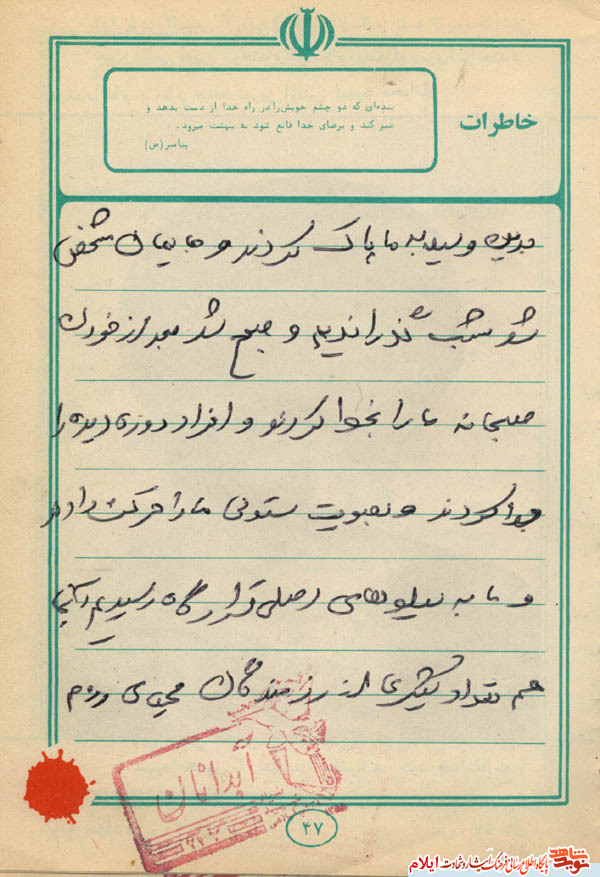 خاطرات
بنده‌ای که دو چشم خویش را در راه خدا از دست بدهد و
صبر کند و برضای خدا قانع شود به بهشت میرود.
پیامبر (ص)
بدین وسیله به ما پاک کردند و جایمان مشخص
شد شب گذراندیم و صبح شد بعد از خوردن
صبحانه ما را بخط کردند و افراد دوره دیده را
جدا کردند و بصورت ستونی ما را حرکت دادند
و ما به سیلوهای اصلی قرارگاه رسیدیم اینجا
هم تعداد بیشتری از رزمندگان مهیای رزم
آبدانان
۴۷
نوید شاهد
پایگاه اطلاع رسانی فرهنگ ایثار و شهادت ایلام